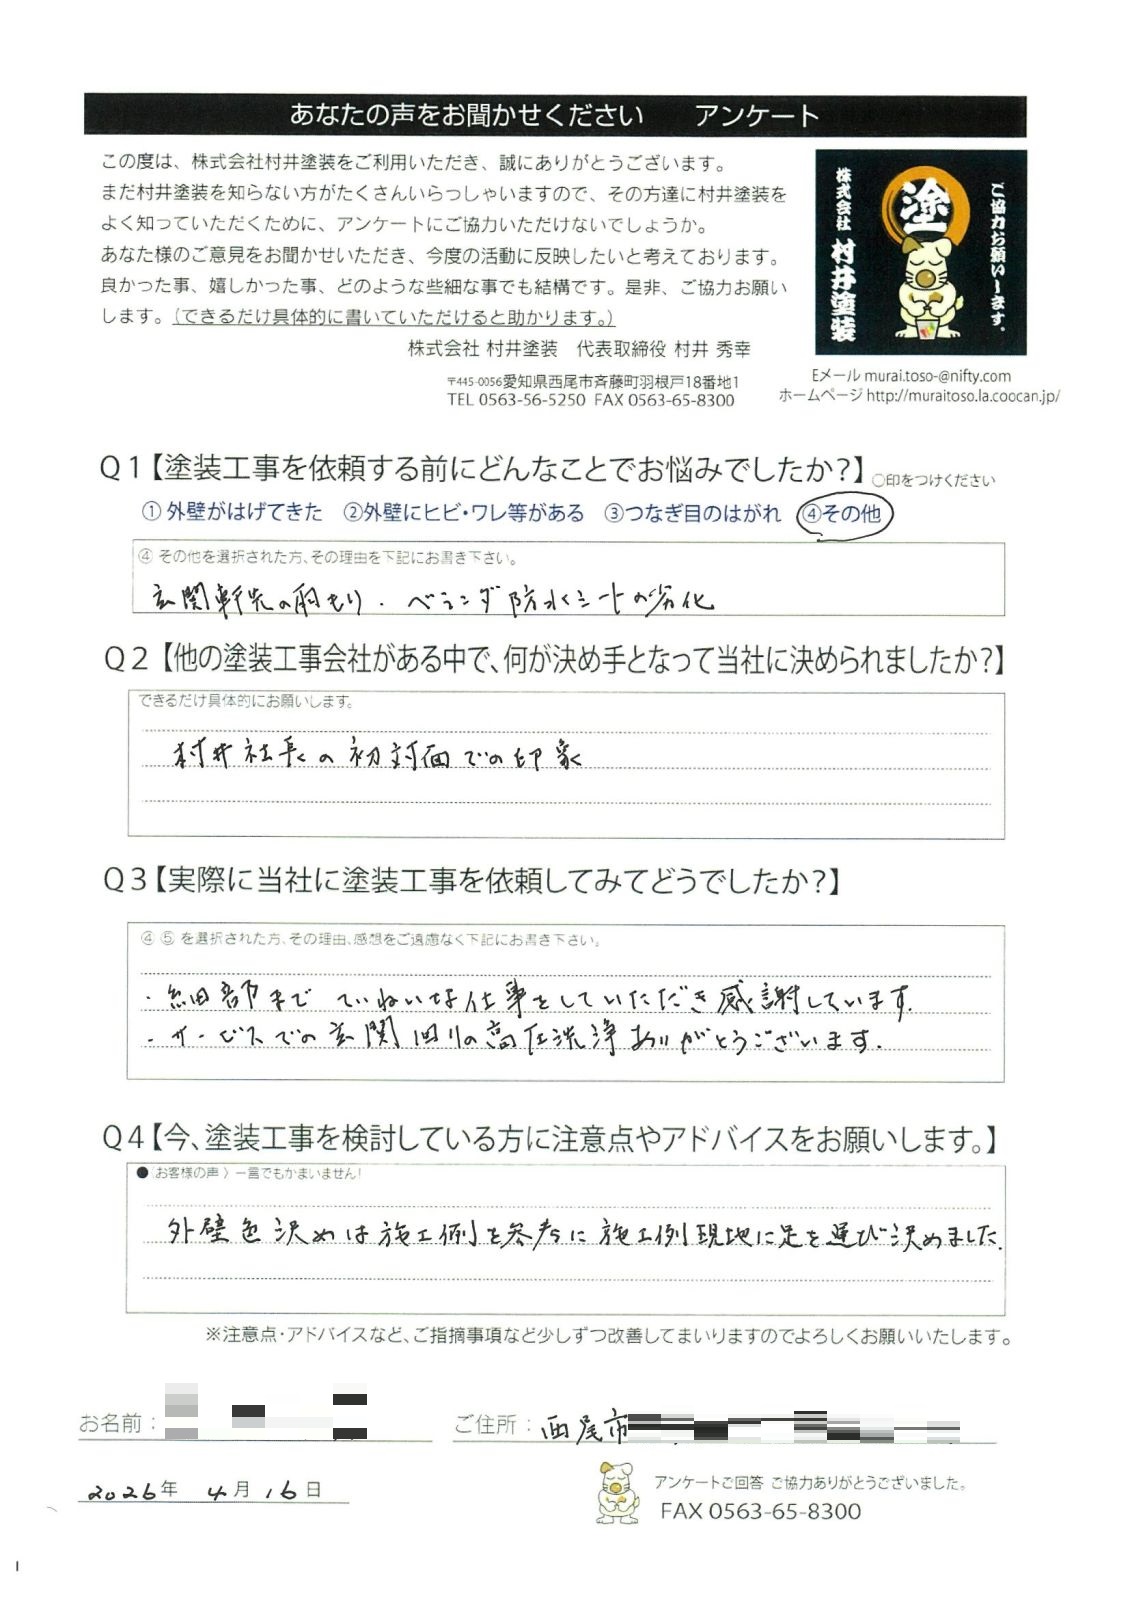 あなたの声をお聞かせください アンケート
この度は、株式会社村井塗装をご利用いただき、誠にありがとうございます。
まだ村井塗装を知らない方がたくさんいらっしゃいますので、その方達に村井塗装を
よく知っていただくために、アンケートにご協力いただけないでしょうか。
あなた様のご意見をお聞かせいただき、今度の活動に反映したいと考えております。
良かった事、嬉しかった事、どのような些細な事でも結構です。是非、ご協力お願い
します。(できるだけ具体的に書いていただけると助かります。)
株式会社 村井塗装 代表取締役 村井 秀幸
〒445-0056愛知県西尾市斉藤町羽根戸18番地1
TEL 0563-56-5250 FAX 0563-65-8300
ご協力お願いします。
塗
株式会社 村井塗装
Eメール murai.toso-@nifty.com
ホームページ http://muraitoso.la.coocan.jp/
Q1【塗装工事を依頼する前にどんなことでお悩みでしたか?】○印をつけください
① 外壁がはげてきた ②外壁にヒビ・ワレ等がある ③つなぎ目のはがれ ④その他
④ その他を選択された方、その理由を下記にお書き下さい。
玄関軒先の雨もり・ベランダ防水シートの劣化
Q2【他の塗装工事会社がある中で、何が決め手となって当社に決められましたか?】
できるだけ具体的にお願いします。
村井社長の初対面での印象
Q3【実際に当社に塗装工事を依頼してみてどうでしたか?】
④ ⑤ を選択された方、その理由、感想をご遠慮なく下記にお書き下さい。
・細部までていねいな仕事をしていただき感謝しています。
・サービスでの玄関回りの高圧洗浄ありがとうございます。
Q4【今、塗装工事を検討している方に注意点やアドバイスをお願いします。】
● お客様の声〉一言でもかまいません!
外壁色決めは施工例を参考に施工例現地に足を運び決めました。
※注意点・アドバイスなど、ご指摘事項など少しずつ改善してまいりますのでよろしくお願いいたします。
お名前：
ご住所：西尾市
2026年 4月16日
アンケートご回答 ご協力ありがとうございました。
FAX 0563-65-8300